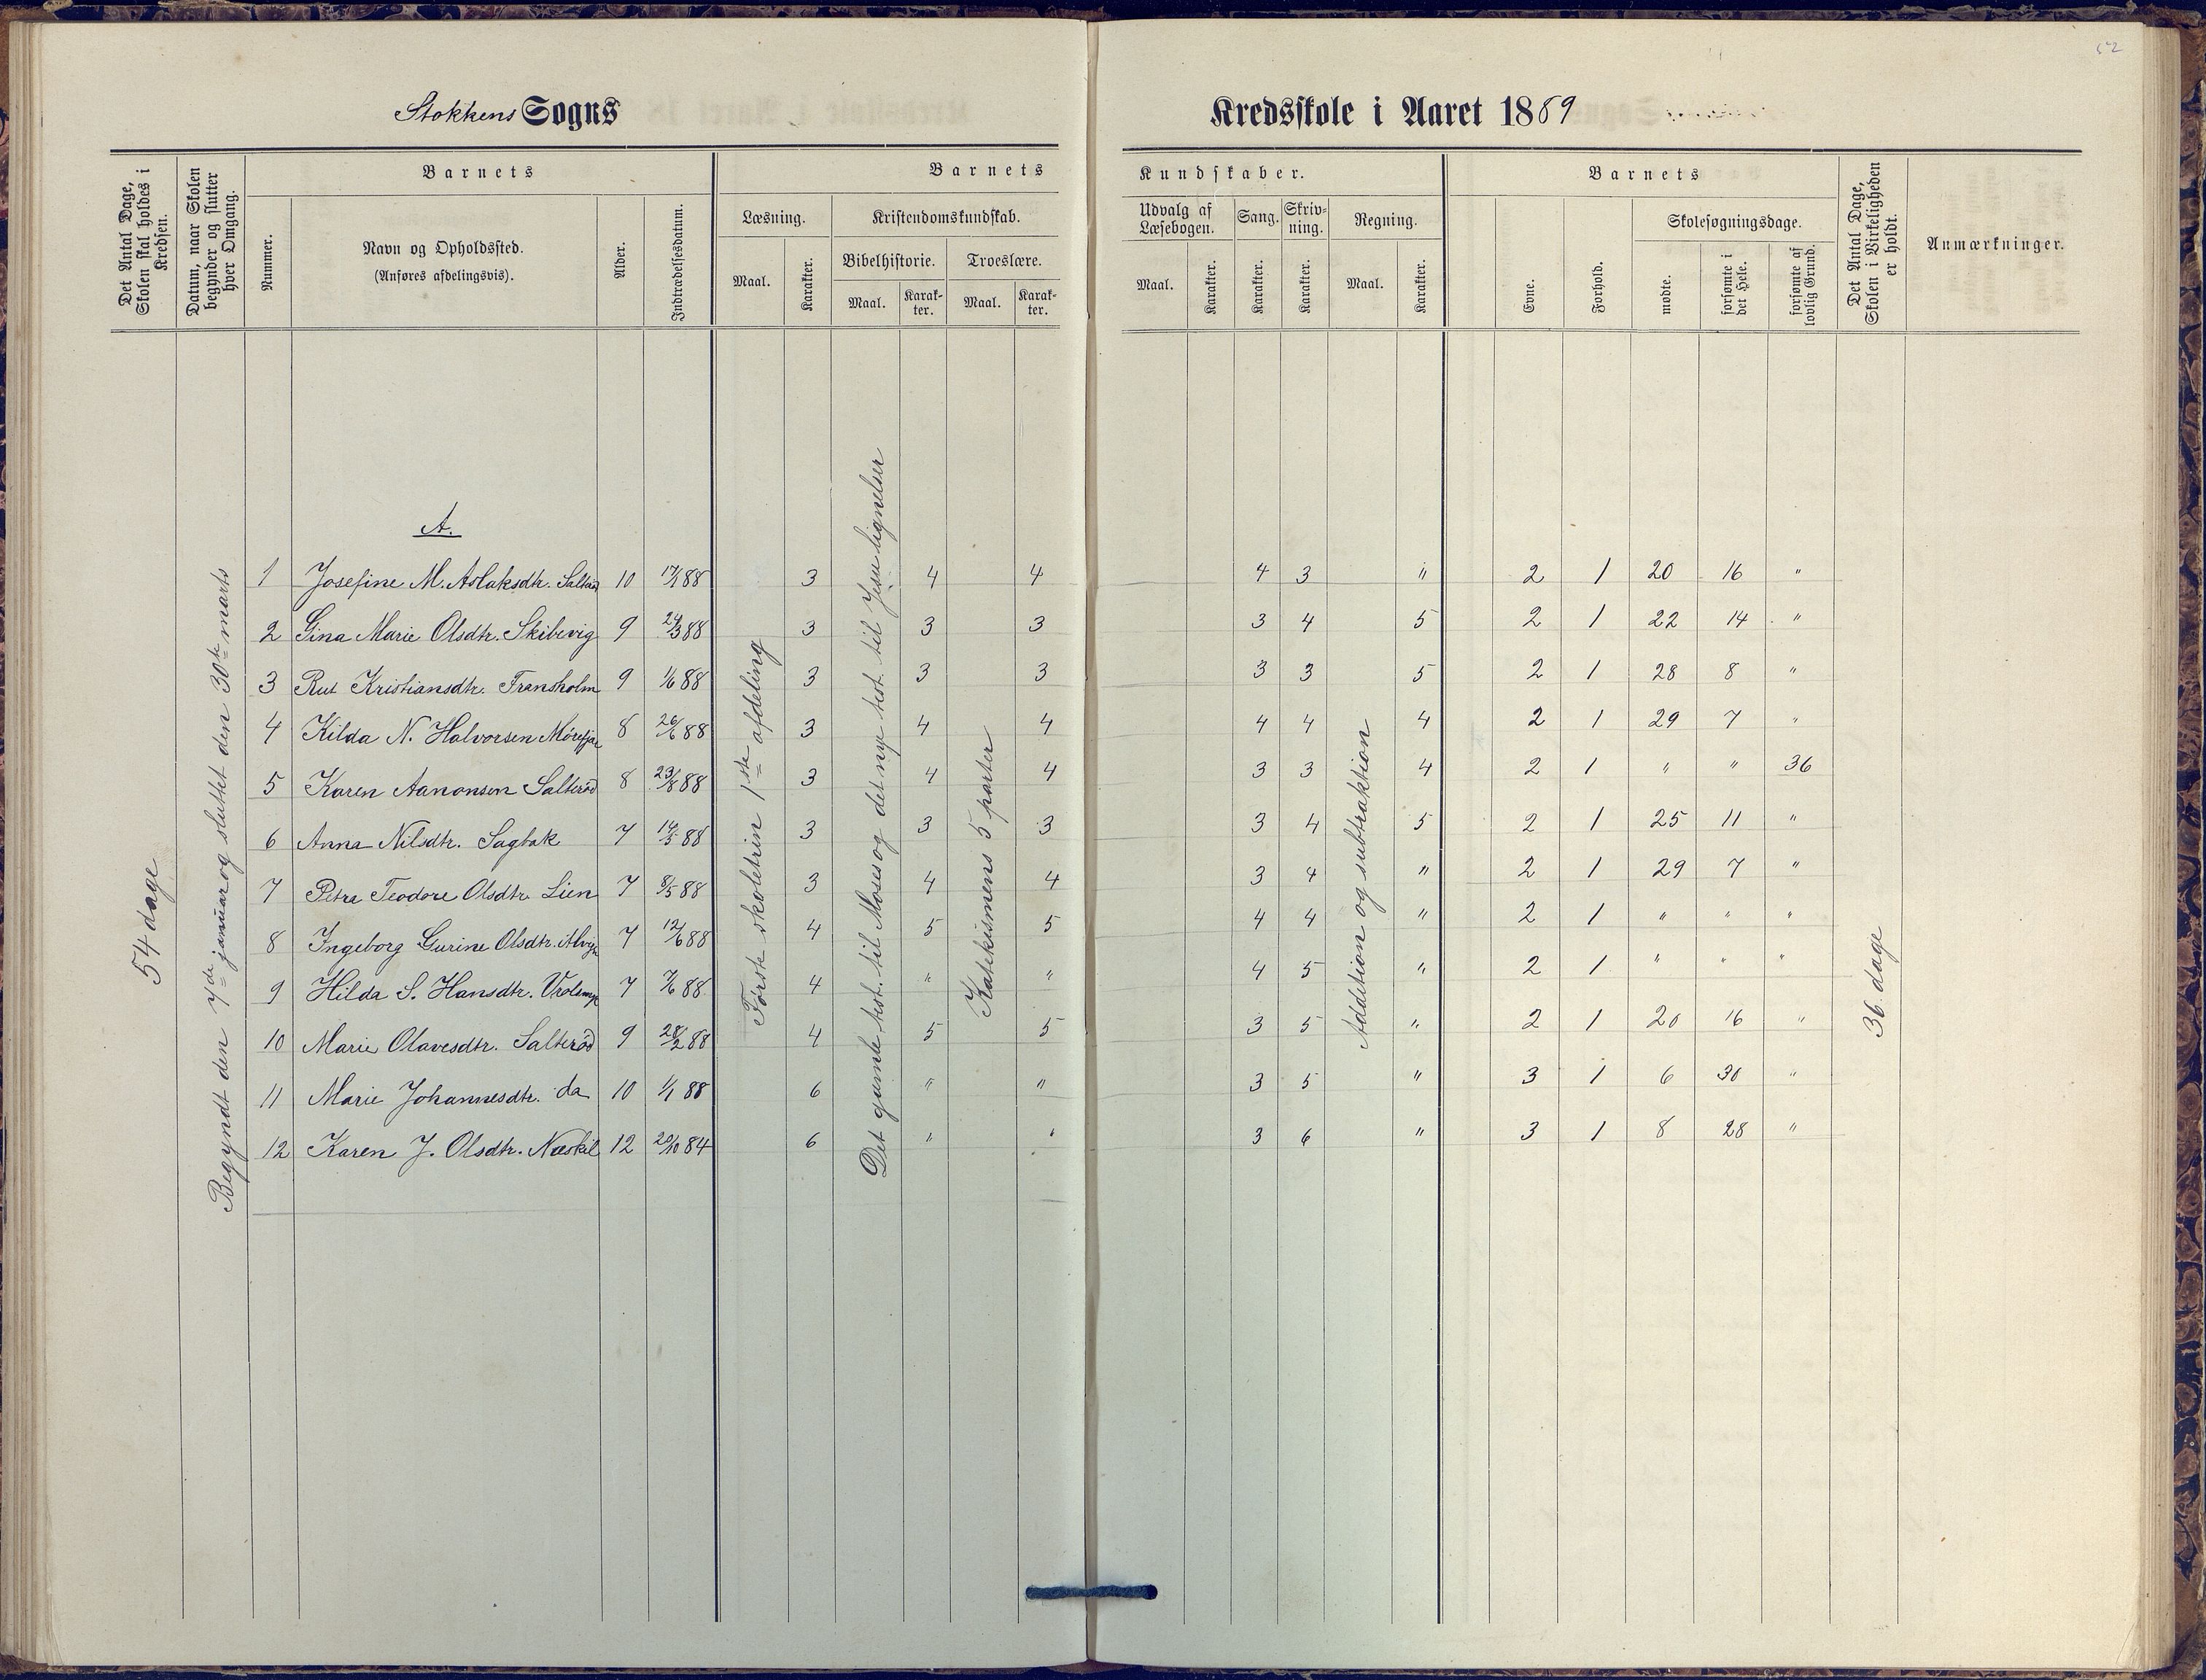 52
Stokkens Sogns Kredsskole i Aaret 1889
Det Antal Dage, Skolen skal holdes i Kredsen.
Datum, naar Skolen begynder og slutter hver Omgang.
Barnets
Nummer.
Navn og Opholdssted.
(Anføres afdelingsvis).
Alder.
Indtrædelsesdatum.
Barnets Kundskaber.
Læsning.
Maal.
Karakter.
Kristendomskundskab.
Bibelhistorie.
Maal.
Karak-
ter.
Troeslære.
Maal.
Karak-
ter.
Udvalg af
Læsebogen.
Maal.
Karakter.
Sang.
Karakter.
Skriv-
ning.
Karakter.
Regning.
Maal.
Karakter.
Barnets
Evne.
Forhold.
Skolesøgningsdage.
mødte.
forsømte i det Hele.
forsømte af lovlig Grund.
Det Antal Dage, Skolen i Virkeligheden er holdt.
Anmærkninger.
54 dage
Begyndt den 7de januar og sluttet den 30te marts
Første skoletrin 1ste afdeling
Det gamle test. til Moses og det nye test. til Jesu lignelser
Katekismens 5 parter
Addition og subtraktion
36 dage
A.
1 Josefine M. Aslaksdtr. 10 17/1 88 3 4 4 4 3 " 2 1 20 16 "
2 Gina Marie Olsdtr. Skibevig 9 24/3 88 3 3 3 3 4 5 2 1 22 14 "
3 Rut Kristiansdtr. Fransholm 9 1/6 88 3 3 3 3 3 5 2 1 28 8 "
4 Kilda N. Halvorsen 8 26/6 88 3 4 4 4 4 4 2 1 29 7 "
5 Karen Aanonsen Salterød 8 23/8 88 3 4 4 3 3 4 2 1 " " 36
6 Anna Nilsdtr. Sagbak 7 14/5 88 3 3 3 3 4 5 2 1 25 11 "
7 Petra Teodore Olsdtr. Lien 7 8/5 88 3 4 4 3 4 " 2 1 29 7 "
8 Ingeborg Gurine Olsdtr. 7 12/6 88 4 5 5 4 4 " 2 1 " " "
9 Hilda S. Hansdtr. 7 7/6 88 4 " " 4 5 " 2 1 " " "
10 Marie Olavesdtr. Salterød 9 28/2 88 4 5 5 3 5 " 2 1 20 16 "
11 Marie Johannesdtr. do 10 1/1 88 6 " " 3 5 " 3 1 6 30 "
12 Karen J. Olsdtr. Næskil 12 20/10 84 6 " " 3 6 " 3 1 8 28 "